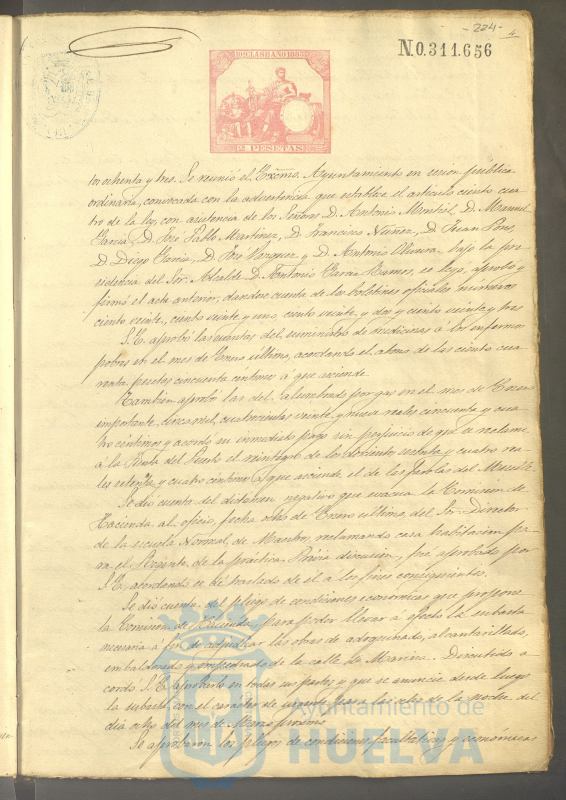 - 224 -
4
N.0.311.656
10ª CLASE AÑO 1883
2 PESETAS
tos ochenta y tres. Se reunió el Excmo. Ayuntamiento en sesion publica
ordinaria, convocada con la advertencia que establece el articulo ciento cua
tro de la ley, con asistencia de los Señores D. Antonio Montiel, D. Manuel
Garcia, D. José Pablo Martinez, D. Francisco Nuñez, D. Juan Pons,
D. Diego Garcia, D. José Vazquez y D. Antonio Oliveira bajo la pre
sidencia del Sor. Alcalde D. Antonio Garcia Ramos, se leyó, aprobó y
firmó el acta anterior, dandose cuenta de los boletines oficiales numeros
ciento veinte, ciento veinte y uno, ciento veinte y dos y ciento veinte y tres
S. E. aprobó las cuentas del suministro de medicinas a los enfermos
pobres en el mes de Enero ultimo, acordando el abono de las ciento cua
renta pesetas cincuenta centimos á que asciende.
Tambien aprobó las del alumbrado por gas en el mes de Enero
importante, cuatrocientos veinte y nueve reales cincuenta y cua
tro centimos y acordó su inmediato pago sin perjuicio de que se reclame
á la Junta del Puerto el reintegro de los doscientos setenta y cuatro rea
les setenta y cuatro centimos á que asciende el de las farolas del Muelle
Se dió cuenta del dictamen negativo que evacua la Comision de
Hacienda al oficio, fecha ocho de Enero ultimo, del Sor. Director
de la escuela Normal de Maestros, reclamando casa habitacion pa
ra el Regente de la práctica. Prévia discusion, fué aprobado por
S. E. acordando se dé traslado de él a los fines consiguientes.
Se dió cuenta del pliego de condiciones economicas que propone
la Comision de Hacienda para poder llevar a efecto la subasta
necesaria a fin de adjudicar las obras de adoquinado, alcantarillado,
embaldosado y empedrado de la calle de Marina. Discutido a
cordó S. E. aprobarlo en todas sus partes, y que se anuncie desde luego
la subasta con el caracter de urgente para las ocho de la noche del
dia ocho del mes de Marzo proximo
Se aprobaron los pliegos de condiciones facultativas y economicas
Ayuntamiento de
HUELVA